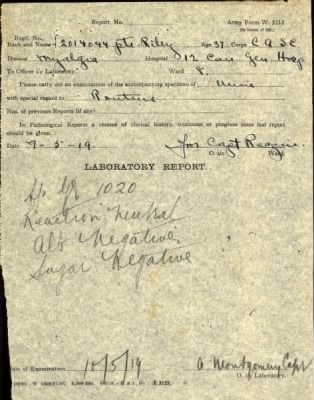 Report No. Army Form W. 3212
Regtl. No.
Rank and Name 2014044 Pte. Riley Age 37 Corps C A S C
Disease Myalgia Hospital 12 Can Gen Hosp
To Officer i/c Laboratory. Ward 8.
Please carry out an examination of the accompanying specimen of Urine
with special regard to Routine
Nos. of previous Reports (if any)
In Pathological Reports a résumé of clinical history, treatment or progress since last report
should be given.
Date 9-5-19. for Capt
O. i/c Ward.
LABORATORY REPORT.
Sp Gr 1020
Reaction Neutral
Alb Negative
Sugar Negative
Date of Examination 10/5/19 A. Montgomery Capt
O. i/c Laboratory.